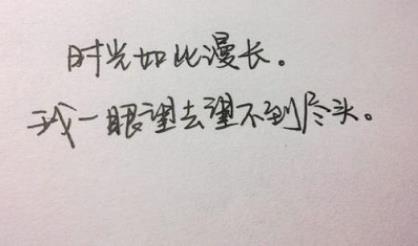 时光如此漫长。
我一眼望去望不到尽头。